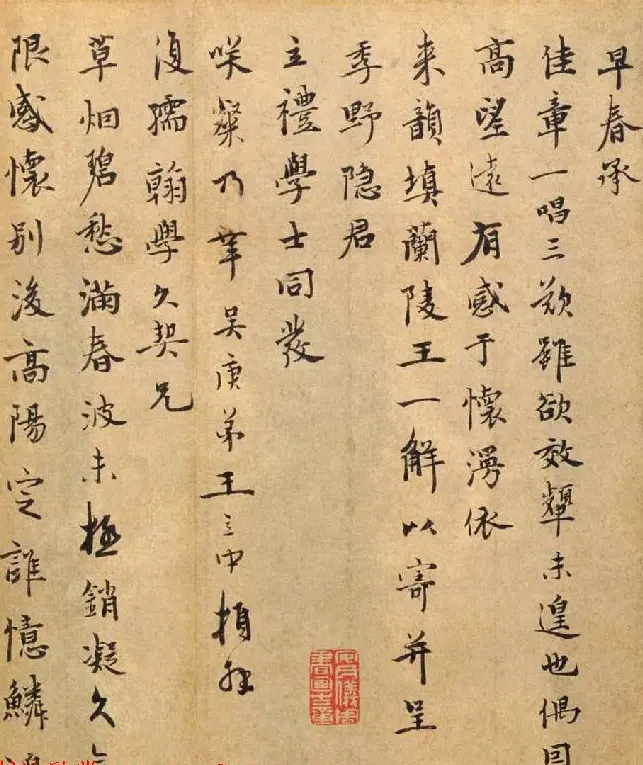 早春承
佳章一唱三歎雖欲效顰未遑也偶因
高望遠有感于懷漫依
来韻填蘭陵王一解以寄并呈
季野隐君
立禮學士同發
咲粲乃幸吴庚弟王立中頓
復孺翰學久契兄
草烟碧愁滿春波未極銷凝久
限感懷别後高陽定誰憶鱗